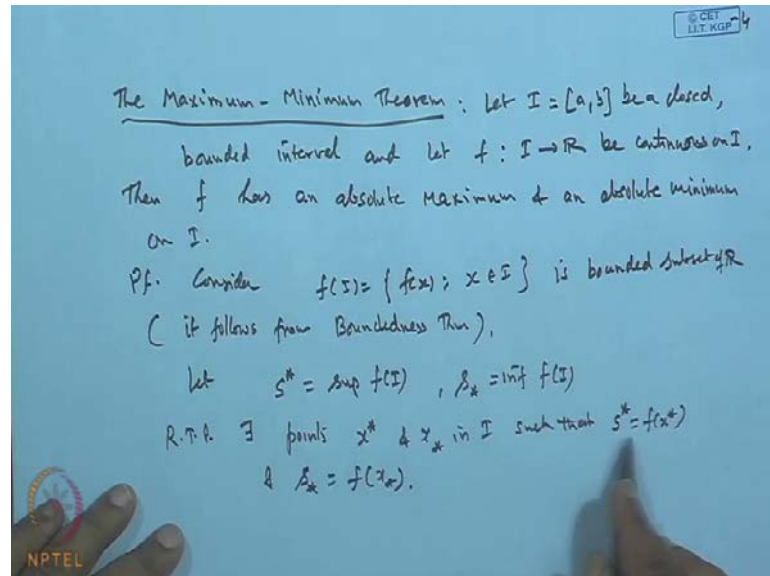 © CET
I.I.T. KGP
-4
The Maximum - Minimum Theorem : Let I = [a, b] be a closed,
bounded interval and let f : I → R be continuous on I.
Then f has an absolute maximum & an absolute minimum
on I.
Pf. Consider f(I) = { f(x) ; x ∈ I } is bounded subset of R
( it follows from Boundedness Thm ).
Let s* = sup f(I) , s_* = inf f(I)
R.T.P. ∃ points x* & x_* in I such that s* = f(x*)
& s_* = f(x_*).
NPTEL